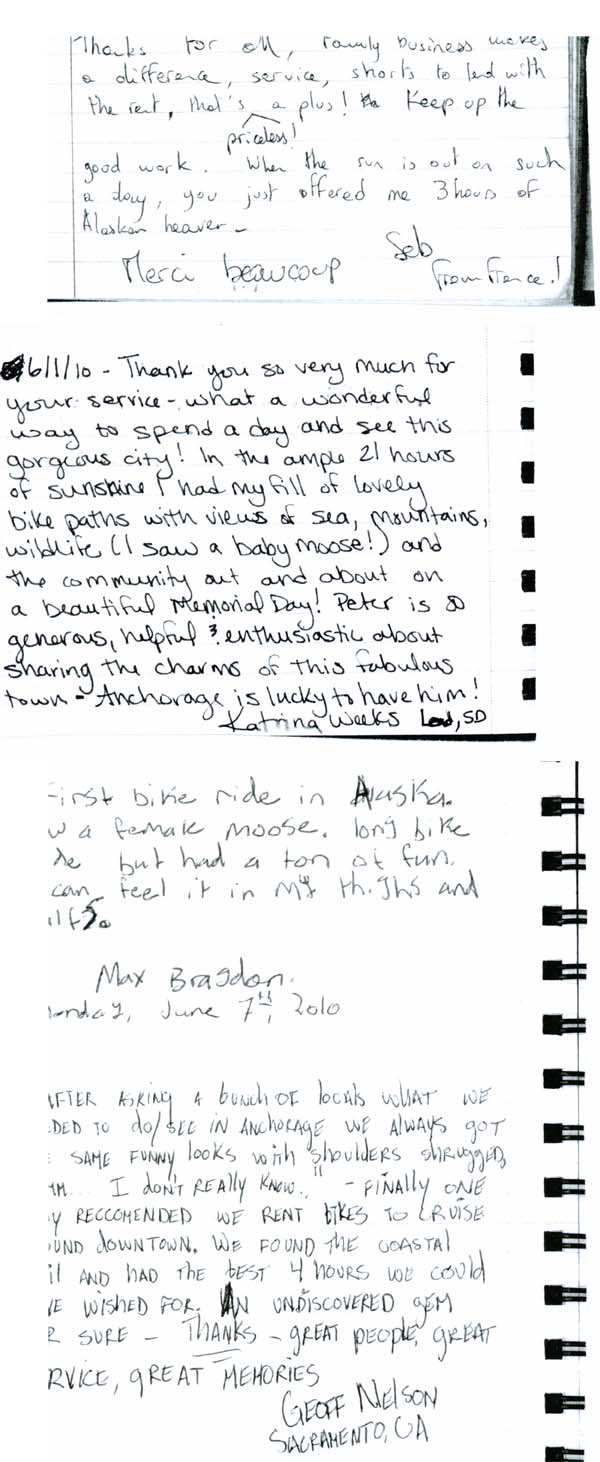 Thanks for all, family business makes
a difference, service, shorts to lend with
the rent, that's a plus! Keep up the
priceless!
good work. When the sun is out on such
a day, you just offered me 3 hours of
Alaskan heaven -
Seb
Merci beaucoup
From France!
6/1/10 - Thank you so very much for
your service - what a wonderful
way to spend a day and see this
gorgeous city! In the ample 21 hours
of sunshine I had my fill of lovely
bike paths with views of sea, mountains,
wildlife (I saw a baby moose!) and
the community out and about on
a beautiful Memorial Day! Peter is so
generous, helpful & enthusiastic about
sharing the charms of this fabulous
town - Anchorage is lucky to have him!
Katrina Weeks Lead, SD
First bike ride in Alaska.
w a female moose. long bike
de but had a ton of fun.
can feel it in my thighs and
lfs.
Max Bragdon.
onday, June 7th, 2010
AFTER ASKING A bUNCH OF locals WHAT WE
DED TO do/SEE IN ANCHORAGE WE ALWAYS GOT
E SAME FUNNY looks with "shoulders shrugged,
UM... I don't REALLY KNOW.." - FINALLY ONE
Y RECCOMENDED WE RENT BIKES TO CRUISE
OUND dOWNTOWN. WE FOUND THE COASTAL
il AND hAD THE bEST 4 hOURS WE COULD
VE WISHED FOR. AN UNDISCOVERED gEM
R SURE - THANKS - gREAT pEOPLE, gREAT
RVICE, gREAT MEMORIES
GEOFF NELSON
SACRAMENTO, CA